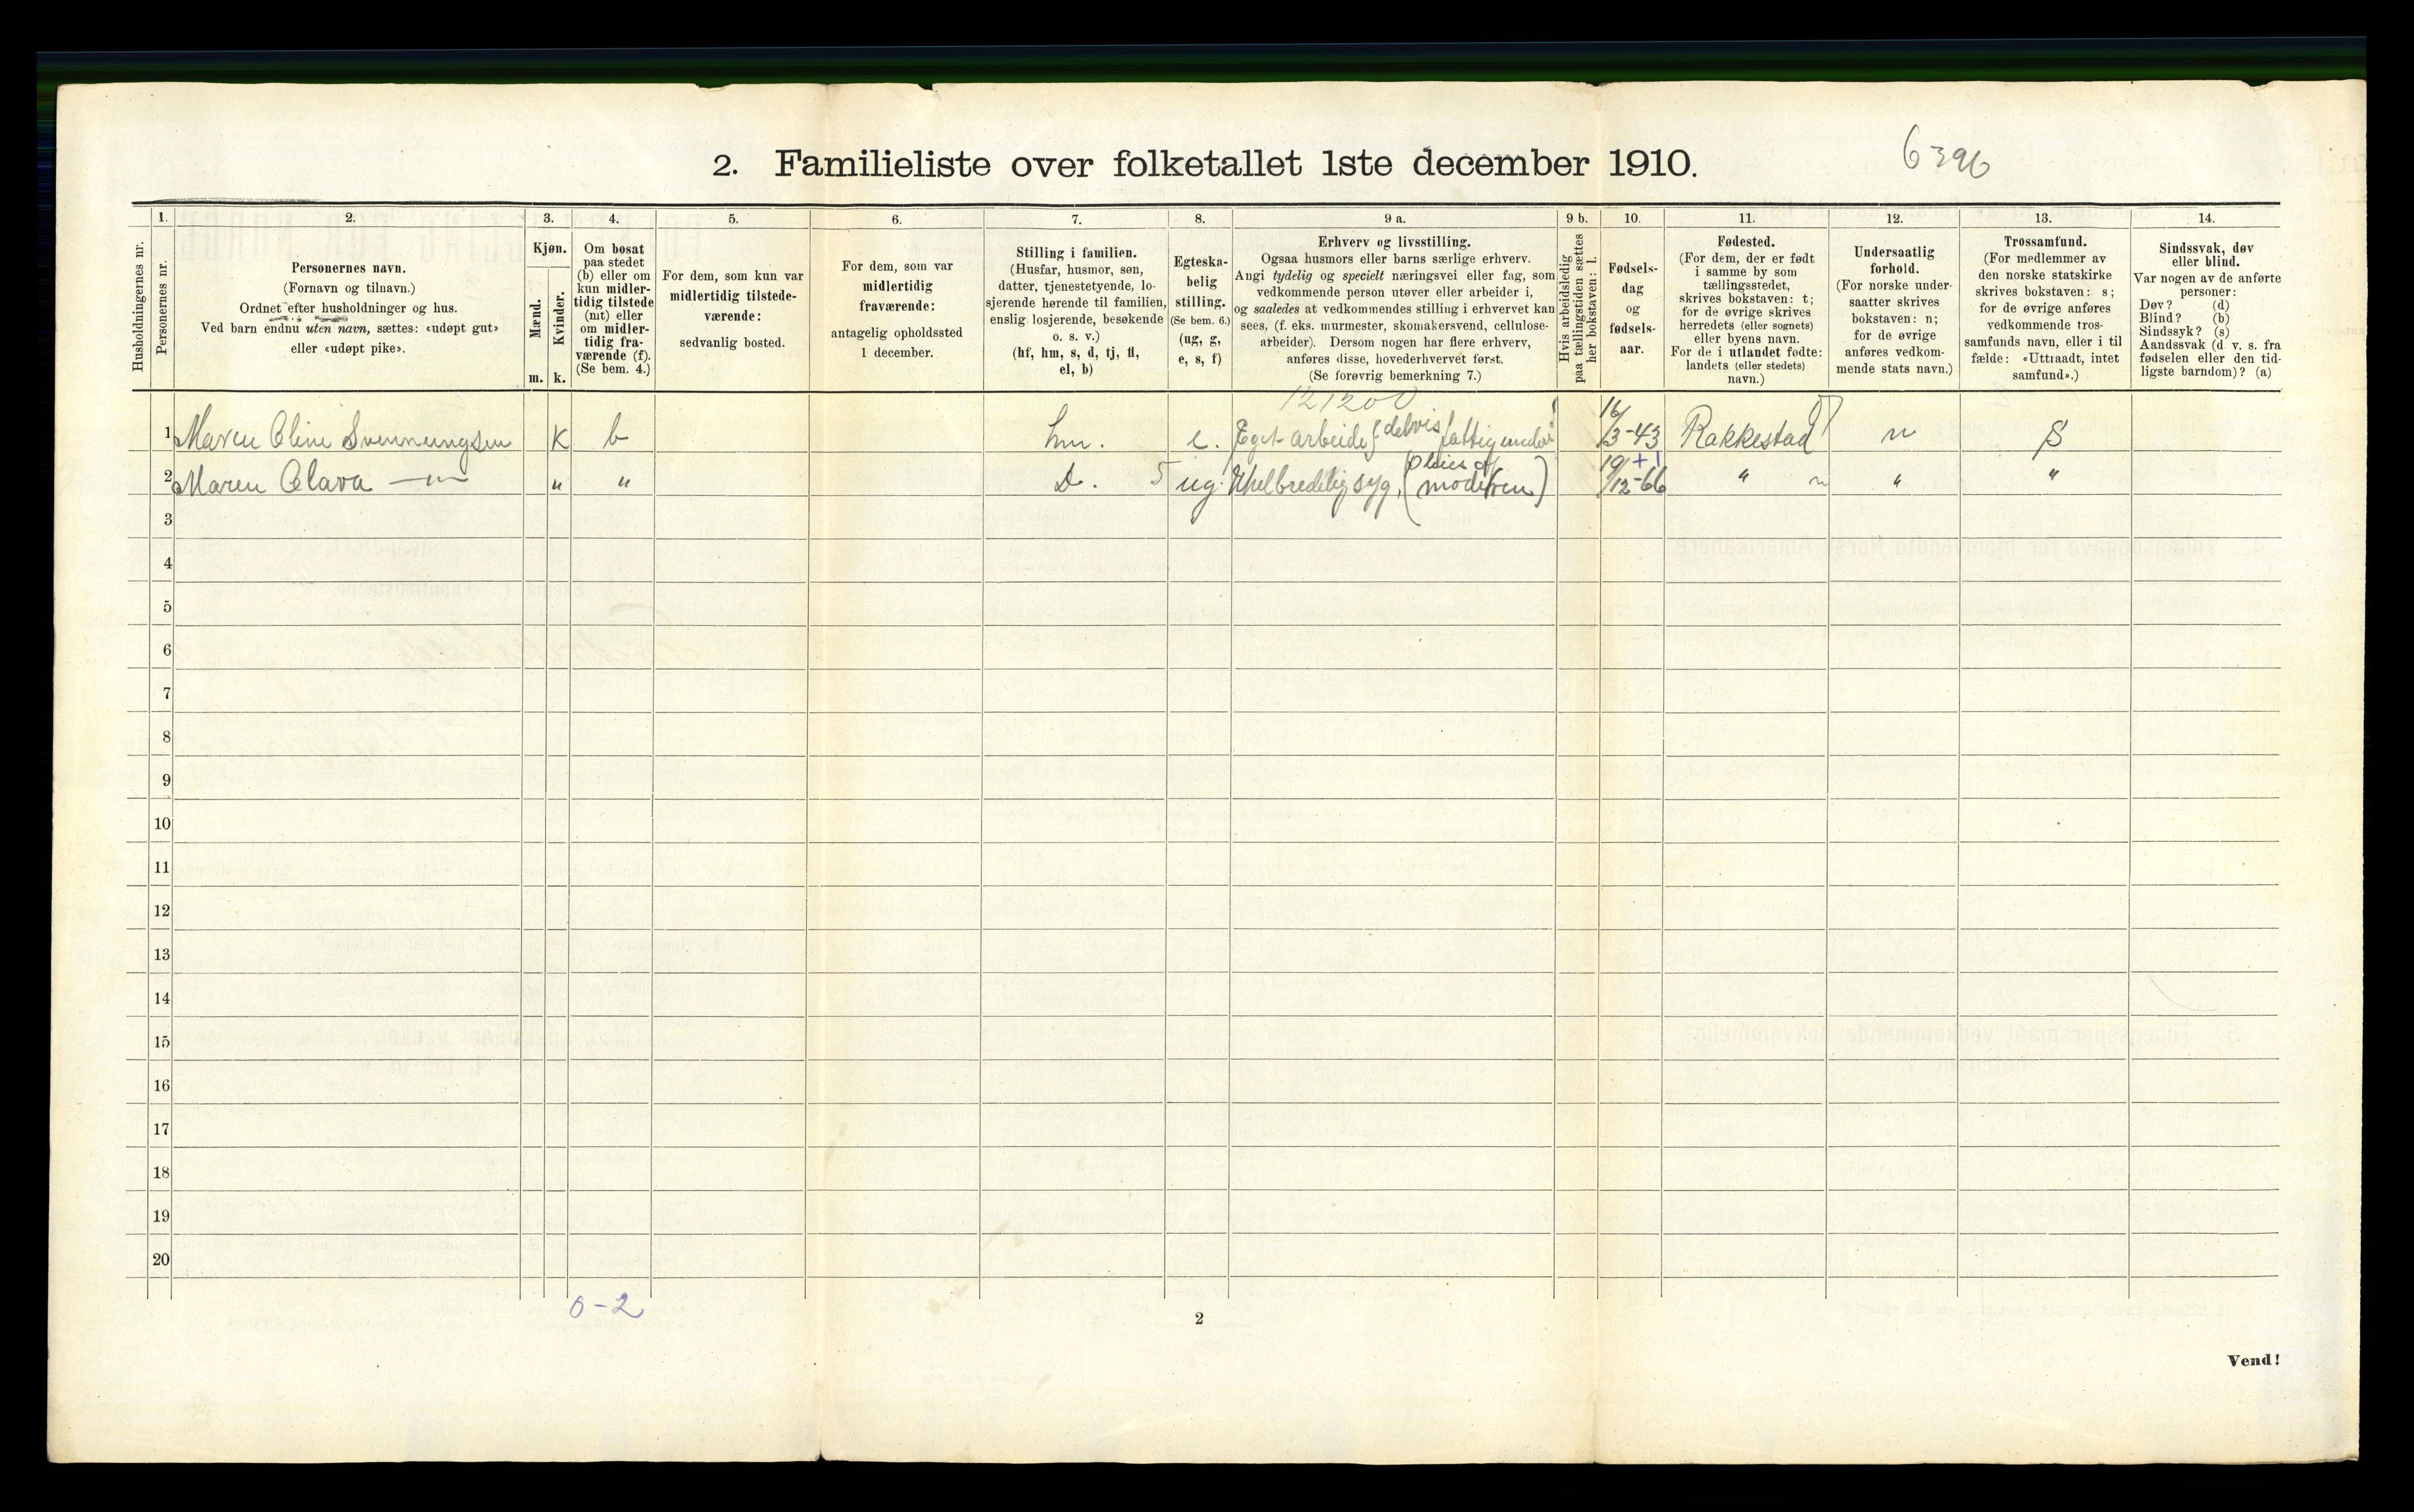 2. Familieliste over folketallet 1ste december 1910.
6396
Husholdningernes nr.
1.
Personernes nr.
2.
Personernes navn.
(Fornavn og tilnavn.)
Ordnet efter husholdninger og hus.
Ved barn endnu uten navn, sættes: «udøpt gut»
eller «udøpt pike».
3.
Kjøn.
Mænd.
Kvinder.
m.
k.
4.
Om bosat
paa stedet
(b) eller om
kun midler-
tidig tilstede
(mt) eller
om midler-
tidig fra-
værende (f).
(Se bem. 4.)
5.
For dem, som kun var
midlertidig tilstede-
værende:
sedvanlig bosted.
6.
For dem, som var
midlertidig
fraværende:
antagelig opholdssted
1 december.
7.
Stilling i familien.
(Husfar, husmor, søn,
datter, tjenestetyende, lo-
sjerende hørende til familien,
enslig losjerende, besøkende
o. s. v.)
(hf, hm, s, d, tj, fl,
el, b)
8.
Egteska-
belig
stilling.
(Se bem. 6.)
(ug, g,
e, s, f)
9 a.
Erhverv og livsstilling.
Ogsaa husmors eller barns særlige erhverv.
Angi tydelig og specielt næringsvei eller fag, som
vedkommende person utøver eller arbeider i,
og saaledes at vedkommendes stilling i erhvervet kan
sees, (f. eks. murmester, skomakersvend, cellulose-
arbeider). Dersom nogen har flere erhverv,
anføres disse, hovederhvervet først.
(Se forøvrig bemerkning 7.)
9 b.
Hvis arbeidsledig
paa tællingstiden sættes
her bokstaven: l.
10.
Fødsels-
dag
og
fødsels-
aar.
11.
Fødested.
(For dem, der er født
i samme by som
tællingsstedet,
skrives bokstaven: t;
for de øvrige skrives
herredets (eller sognets)
eller byens navn.
For de i utlandet fødte:
landets (eller stedets)
navn.)
12.
Undersaatlig
forhold.
(For norske under-
saatter skrives
bokstaven: n;
for de øvrige
anføres vedkom-
mende stats navn.)
13.
Trossamfund.
(For medlemmer av
den norske statskirke
skrives bokstaven: s;
for de øvrige anføres
vedkommende tros-
samfunds navn, eller i til
fælde: «Uttraadt, intet
samfund».)
14.
Sindssvak, døv
eller blind.
Var nogen av de anførte
personer:
Døv? (d)
Blind? (b)
Sindssyk? (s)
Aandssvak (d v. s. fra
fødselen eller den tid-
ligste barndom)? (a)
121200
1 Maren Oline Svennungsen K b hm. e. Eget arbeide & delvis fattigunder 16/3-43 Rakkestad n S
2 Maren Olava —"— " " D. 5 ug. Uhelbredelig syg, (Pleies af moderen) 19/12-66 " n " "
3
4
5
6
7
8
9
10
11
12
13
14
15
16
17
18
19
20
0-2
2
Vend!